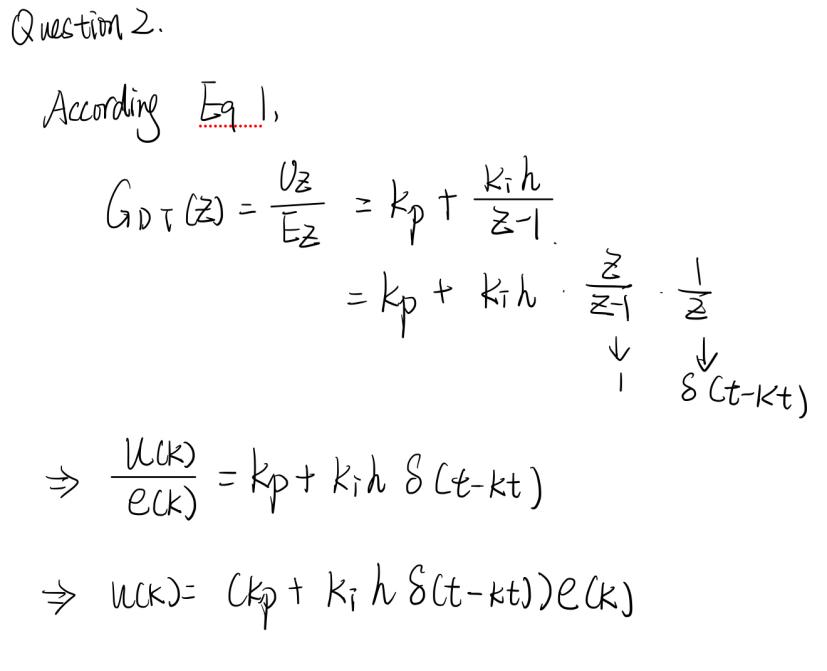 Question 2.
According Eq 1,
G_DT(z) = Uz/Ez = kp + kih/(z-1).
= kp + kih · z/(z-1) · 1/z
↓ ↓
1 δ(t-kt)
⇒ u(k)/e(k) = kp + kih δ(t-kt)
⇒ u(k) = (kp + ki h δ(t-kt))e(k)